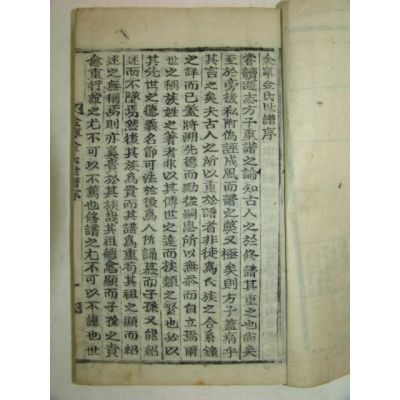 金寧金氏世譜序
嘗讀遜志方子重譜之論知古人之於修譜其重之也尚矣
至於旁後私偽誣成風而譜之獘又極矣則方子蓋痛乎
其言之矣夫古人之所以重於譜者非徒爲氏族之合系錄
之詳而已蓋將朔先德而勵後嗣思所以無忝而自立焉爾
世之稱族姓之著者非以其傳世之遠而族類之繁也必以
其先世之德義名節可法於後爲人所誦慕而子孫又能紹
述而不墜焉然後其族爲貴而其譜爲重苟其祖之顯而紹
述之無稱焉則亦奚貴於其族哉其祖德愈顯而子孫之責
愈重行證之尤不可以不篤也修譜之尤不可以不謹也世
金寧金氏世譜序
一